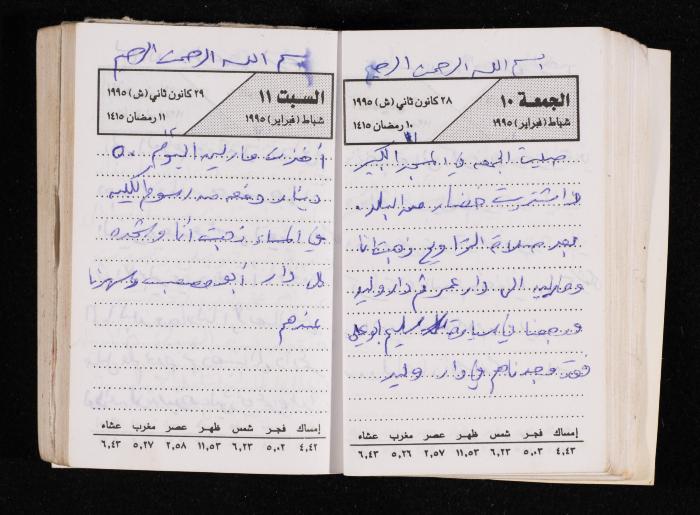 بسم الله الرحمن الرحيم
الجمعة ١٠
٢٨ كانون ثاني (ش) ١٩٩٥
شباط (فبراير) ١٩٩٥
١٠ رمضان ١٤١٥
صليت الجمعه في المسجد الكبير
واشتريت خضار من البلد.
بعد صلاة التراويح ذهبت انا
وماريه الى دار عمر ثم دار وليد
ورجعنا في سيارة سليم ابو علي
فقد وجدناهم في دار وليد
إمساك فجر شمس ظهر عصر مغرب عشاء
٤,٤٣ ٥,٠٣ ٦,٢٣ ١١,٥٣ ٢,٥٧ ٥,٢٦ ٦,٤٣
بسم الله الرحمن الرحيم
السبت ١١
٢٩ كانون ثاني (ش) ١٩٩٥
شباط (فبراير) ١٩٩٥
١١ رمضان ١٤١٥
أخذت ماريه اليوم ٥٠
دينار دفعه من رسوم الكليه
في المساء ذهبت أنا
دار أبو مصعب وسهرنا
عندهم
إمساك فجر شمس ظهر عصر مغرب عشاء
٤,٤٢ ٥,٠٢ ٦,٢٣ ١١,٥٣ ٢,٥٨ ٥,٢٧ ٦,٤٣